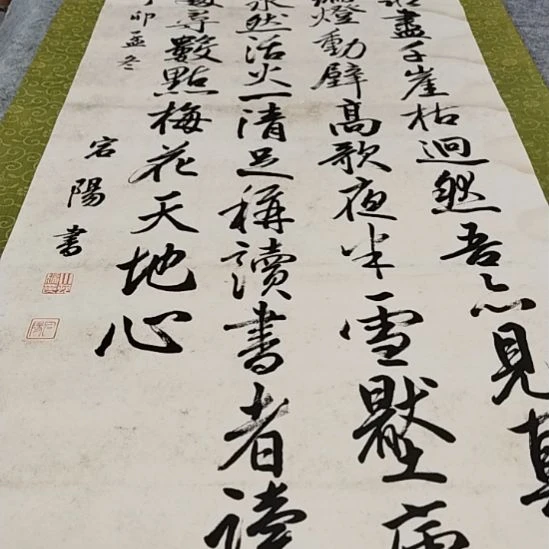 盡千崖枯迥然吾亦見真
燈動壁高歌夜半雪壓
然活火一清足稱讀書者讀
尋數點梅花天地心
卯孟冬
宕陽書